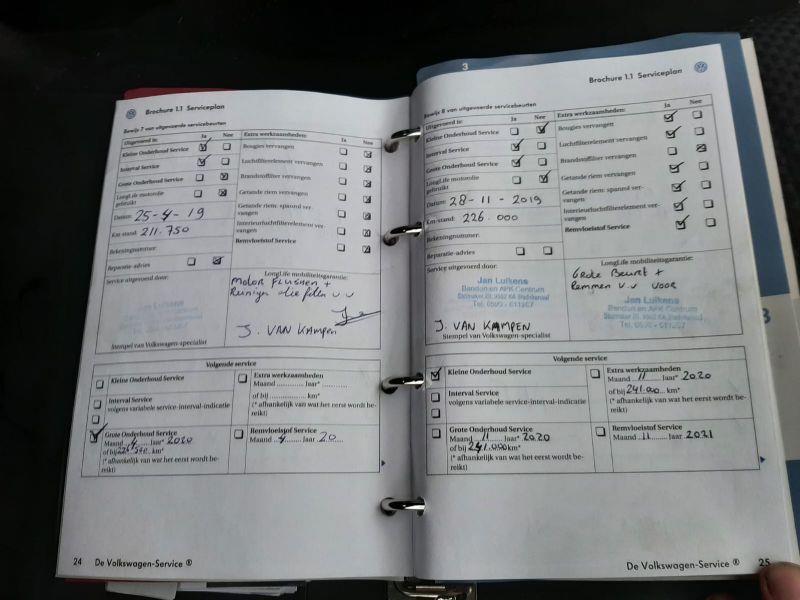 Brochure 1.1 Serviceplan
Bewijs 7 van uitgevoerde servicebeurten
Uitgevoerd is: Ja Nee
Kleine Onderhoud Service
Interval Service
Grote Onderhoud Service
LongLife motorolie
gebruikt
Datum: 25-4-19
Km-stand: 211.750
Rekeningnummer:
Reparatie-advies
Service uitgevoerd door:
Extra werkzaamheden: Ja Nee
Bougies vervangen
Luchtfilterelement vervangen
Brandstoffilter vervangen
Getande riem vervangen
Getande riem: spanrol ver-
vangen
Interieurluchtfilterelement ver-
vangen
Remvloeistof Service
LongLife mobiliteitsgarantie:
MOTOR FLUSHEN +
J. VAN KAMPEN
Stempel van Volkswagen-specialist
Volgende service
Kleine Onderhoud Service
Interval Service
volgens variabele service-interval-indicatie
Grote Onderhoud Service
Maand 4 Jaar* 2020
of bij km*
(* afhankelijk van wat het eerst wordt be-
reikt)
Extra werkzaamheden:
Maand Jaar*
of bij km*
(* afhankelijk van wat het eerst wordt be-
reikt)
Remvloeistof Service
Maand 4 Jaar 20
24 De Volkswagen-Service ®
3
Brochure 1.1 Serviceplan
Bewijs 8 van uitgevoerde servicebeurten
Uitgevoerd is: Ja Nee
Kleine Onderhoud Service
Interval Service
Grote Onderhoud Service
LongLife motorolie
gebruikt
Datum: 28-11-2019
Km-stand: 226.000
Rekeningnummer:
Reparatie-advies
Service uitgevoerd door:
Jan Luikens
Banden en APK Centrum
J. VAN KAMPEN
Stempel van Volkswagen-specialist
Extra werkzaamheden: Ja Nee
Bougies vervangen
Luchtfilterelement vervangen
Brandstoffilter vervangen
Getande riem vervangen
Getande riem: spanrol ver-
vangen
Interieurluchtfilterelement ver-
vangen
Remvloeistof Service
LongLife mobiliteitsgarantie:
GROTE BEURT +
REMMEN V.V VOOR
Jan Luikens
Banden en APK Centrum
Volgende service
Kleine Onderhoud Service
Interval Service
volgens variabele service-interval-indicatie
Grote Onderhoud Service
Maand 11 Jaar* 2020
of bij 241.000 km*
(* afhankelijk van wat het eerst wordt be-
reikt)
Extra werkzaamheden:
Maand 11 Jaar* 2020
of bij 241.000 km*
(* afhankelijk van wat het eerst wordt be-
reikt)
Remvloeistof Service
Maand 11 Jaar 2021
De Volkswagen-Service ® 25
3